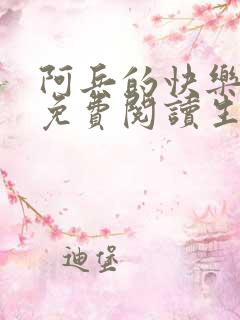 阿兵的快樂
免費閱讀生
迪堡